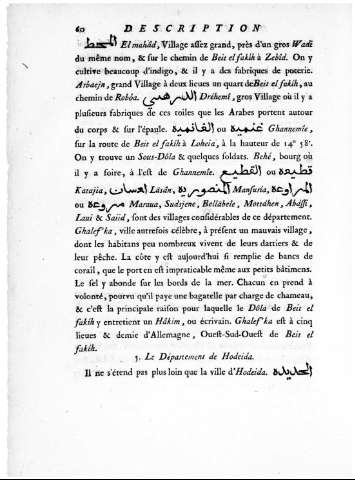 60 DESCRIPTION
المحط El mahád, Village assez grand, près d'un gros Wadi
du même nom, & sur le chemin de Beit el fakíh à Zebîd. On y
cultive beaucoup d'indigo, & il y a des fabriques de poterie.
Arbaejn, grand Village à deux lieues un quart de Beit el fakíh, au
chemin de Robôa. Drêhemî, gros Village où il y a
plusieurs fabriques de ces toiles que les Arabes portent autour
du corps & sur l'épaule. الغانمية ou غنمية Ghannemîe,
sur la route de Beit el fakíh à Loheia, à la hauteur de 14° 58'.
On y trouve un Sous-Dôla & quelques soldats. Behé, bourg où
il y a foire, à l'est de Ghannemîe. القطيع ou قطيعة
Katajia, Lâsân, المنصورية Mansuria, المراوعة
ou مروعة Maraua, Sudsjene, Bellâbele, Mottâhen, Abâssi,
Laui & Saiid, sont des villages considérables de ce département.
Ghalef'ka, ville autrefois célèbre, à présent un mauvais village,
dont les habitans peu nombreux vivent de leurs dattiers & de
leur pêche. La côte y est aujourd'hui si remplie de bancs de
corail, que le port en est impraticable même aux petits bâtimens.
Le sel y abonde sur les bords de la mer. Chacun en prend à
volonté, pourvu qu'il paye une bagatelle par charge de chameau,
& c'est la principale raison pour laquelle le Dôla de Beit el
fakíh y entretient un Hâkim, ou écrivain. Ghalef'ka est à cinq
lieues & demie d'Allemagne, Ouest-Sud-Ouest de Beit el
fakíh.
3. Le Département de Hodeida.
Il ne s'étend pas plus loin que la ville d'Hodeida. الحديده